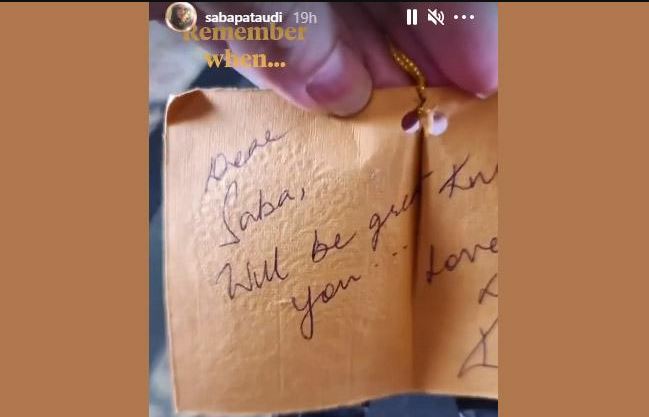 sabapataudi 19h
Remember
when...
Dear
Saba,
Will be gret Kn
you... Love
K